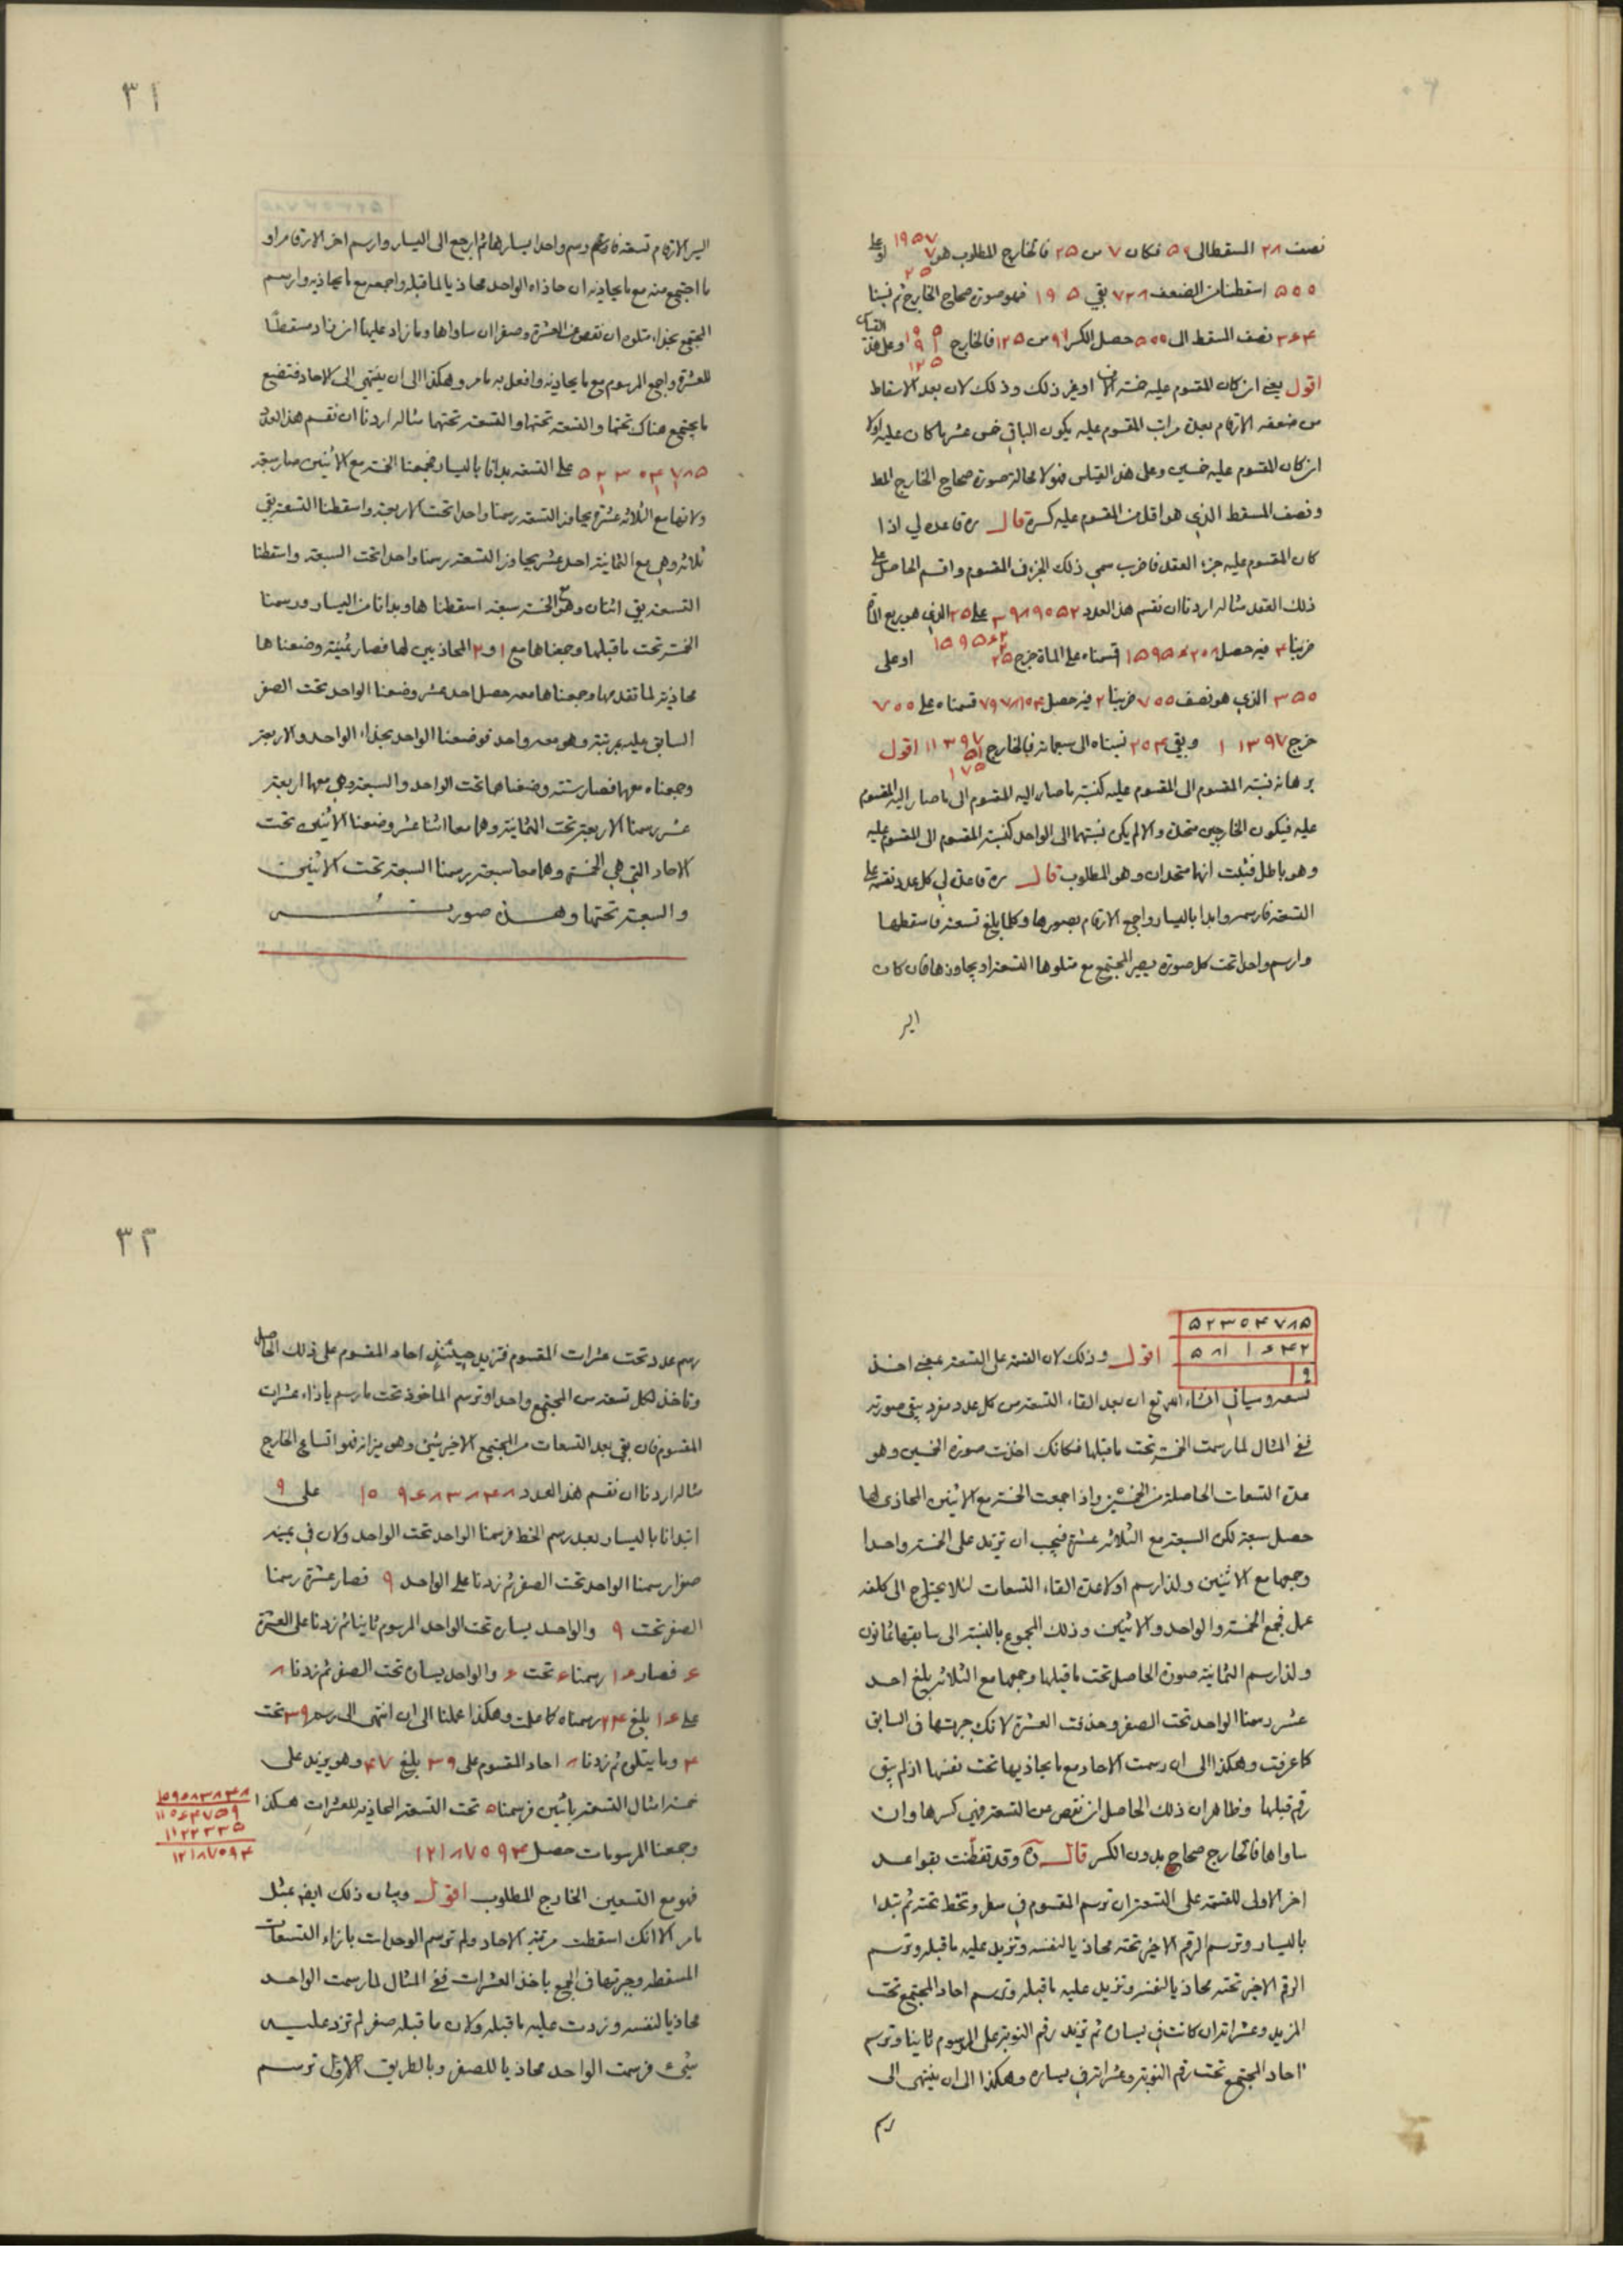 نصف ٢٨ المسقط الى ٥٠ فكان ٧ من ٢٥ فالخارج المطلوب هو ١٩٥٧ ٧ ٢٥ او على
٥٥٥ اسقطنا من الضعف ٧٢٨ بقي ١٩٥ فهو صورة صحاح الخارج ثم نسبنا
نصف المسقط الى ٥٥٥ حصل الكسر من ١٢٥ فالخارج وعلى هذا القياس
اقول يعني ان كان المقسوم عليه خمسة الاف او غير ذلك وذلك لان بعد الاسقاط
من ضعفه الارقام بعدة مراتب المقسوم عليه يكون الباقي خمس عشر ما كان عليه اولا
ان كان المقسوم عليه خمسين وعلى هذا القياس فهو لا محالة صورة صحاح الخارج المط
ونصف المسقط الذي هو اقل من المقسوم عليه كسره قال ره قاعدة لي اذا
كان المقسوم عليه جزء العقد فاضرب سمي ذلك الجزء في المقسوم واقسم الحاصل على
ذلك العقد مثاله اردنا ان نقسم هذا العدد ٣٩٨٩٠٥٢ على ٢٥ الذي هو ربع المائة
ضربنا ٤ فيه حصل ١٥٩٥٦٢٠٨ قسمناه على المائة خرج ١٥٩٥٦٢ ٢٥ او على
٣٥٥ الذي هو نصف ٧٥٥ ضربنا ٢ فيه حصل ٧٩٧٨١٠٤ قسمناه على ٧٥٥
خرج ١١٣٩٧ وبقي ٢٥٤ نسبناه الى سبعمائة فبالخارج ١١٣٩٧ ٥١ ١٧٥ اقول
برهانه نسبة المقسوم الى المقسوم عليه كنسبة ما صار اليه المقسوم الى ما صار اليه المقسوم
عليه فيكون الخارجين متحدة والا لم يكن نسبتهما الى الواحد كنسبة المقسوم الى المقسوم عليه
وهو باطل فثبت انهما متحدان وهو المطلوب قال ره قاعدة لي كل عدد نقسمه على
التسعة فارسمه وابدا باليسار واجمع الارقام بصورها وكلما بلغ تسعة فاسقطها
وارسم واحدا تحت كل صورة يصير المجتمع مع متلوها التسعة او يجاوزها فان كان
اير
٣١
ايسر الارقام تسعة فارسم واحدا يسارها ثم ارجع الى اليسار وارسم اخر الارقام او
ما اجتمع منه مع ما يحاذيه ان حاذاه الواحد محاذيا لما قبله واجمعه مع ما يحاذيه وارسم
المجتمع بحذاء متلوه ان نقص من العشرة وصفرا ان ساواها وما زاد عليها ان زاد مسقطا
للعشرة واجمع المرسوم مع ما يحاذيه وافعل به ما مر وهكذا الى ان ينتهي الى الاحاد فتضع
ما يجتمع هناك تحتها والتسعة تحتها مثاله اردنا ان نقسم هذا العدد
٥٢٣٥٤٧٨٥ على التسعة بدانا باليسار فجمعنا الخمسة مع الاثنين صار سبعة
ولانها مع الثلاثة عشرة يجاوز التسعة رسمنا واحدا تحت الاربعة واسقطنا التسعة بقي
ثلاثة وهي مع الثمانية احد عشر يجاوز التسعة رسمنا واحدا تحت السبعة واسقطنا
التسعة بقي اثنان وهو مع الخمسة سبعة اسقطناها وبدانا من اليسار ورسمنا
الخمسة تحت ما قبلها وجمعناها مع ١ و٢ المحاذيين لها فصار ثمانية وضعناها
محاذية لما تقدمها وجمعناها معه حصل احد عشر وضعنا الواحد تحت الصفر
السابق عليه بمرتبة وهو معه واحد فوضعنا الواحد بحذاء الواحد والاربعة
وجمعناه معها فصار ستة وضعناها تحت الواحد والسبعة وهي معهما اربعة
عشر رسمنا الاربعة تحت الثمانية وهما معا اثنا عشر وضعنا الاثنين تحت
الاحاد التي هي الخمسة وهما معا سبعة رسمنا السبعة تحت الاثنين
والتسعة تحتها وهذه صورته
٥٢٣٥٤٧٨٥
٥٨١١٦٤٢
٩
اقول وذلك لان القسمة على التسعة بمعنى اخذ
تسعه وسياتي انشاء الله تع ان بعد القاء التسعة من كل عدد مفرد يبقى صورته
ففي المثال لما رسمت الخمسة تحت ما قبلها فكانك اخذت صورة الخمسين وهو
عدة التسعات الحاصلة من الخمسين واذا جمعت الخمسة مع الاثنين المحاذي لها
حصل سبعة لكن السبعة مع الثلاثة عشرة فيجب ان تزيد على الخمسة واحدا
وجمعها مع الاثنين ولذا رسم اولا عدة القاء التسعات لئلا يحتاج الى كلفة
عمل فجمع الخمسة والواحد والاثنين وذلك المجموع بالنسبة الى سابقها ثمانون
ولذا رسم الثمانية صورة الحاصل تحت ما قبلها وجمعها مع الثلاثة بلغ احد
عشر رسمنا الواحد تحت الصفر وحذفت العشرة لانك جبرتها في السابق
كما عرفت وهكذا الى ان رسمت الاحاد مع ما يحاذيها تحت نفسها اذ لم يبق
رقم قبلها وظاهر ان ذلك الحاصل ان نقص عن التسعة فهي كسرها وان
ساواها فالخارج صحاح بدون الكسر قال ره وقد تفطنت بقواعد
اخر الاولى للقسمة على التسعة ان ترسم المقسوم في سطر وتخط تحته ثم تبدا
باليسار وترسم الرقم الاخير تحته محاذيا لنفسه وتزيد عليه ما قبله وترسم
الرقم الاخير تحته محاذيا لنفسه وتزيد عليه ما قبله وترسم احاد المجتمع تحت
المزيد وعشراته ان كانت في يساره ثم تزيد رقم النوبة على المرسوم ثانيا وترسم
احاد المجتمع تحت رقم النوبة وعشراته في يساره وهكذا الى ان ينتهى الى
رسم
٣٢
رسم عدد تحت عشرات المقسوم فتزيد حينئذ احاد المقسوم على ذلك الحاصل
وتاخذ لكل تسعة من المجتمع واحدا وترسم الماخوذ تحت ما رسم بازاء عشرات
المقسوم فان بقي بعد التسعات من المجتمع الاخير شئ وهو ميزانه فهو اتساع الخارج
مثاله اردنا ان نقسم هذا العدد ١٠٩٦٨٣٨٤٨ على ٩
ابتدانا باليسار بعد رسم الخط فرسمنا الواحد تحت الواحد ولان في يمينه
صفرا رسمنا الواحد تحت الصفر ثم زدنا على الواحد ٩ فصار عشرة رسمنا
الصفر تحت ٩ والواحد يساره تحت الواحد المرسوم ثانيا ثم زدنا على العشرة
٦ فصار ١٦ رسمنا ٦ تحت ٦ والواحد يساره تحت الصفر ثم زدنا ٨
على ١٦ بلغ ٢٤ رسمناه كما علمت وهكذا عملنا الى ان انتهى الى رسم ٣٩ تحت
٤ وما يتلوه ثم زدنا ٨ احاد المقسوم على ٣٩ بلغ ٤٧ وهو يزيد على
خمسة امثال التسعة باثنين فرسمنا ٥ تحت التسعة المحاذية للعشرات هكذا
١١٠٦٤٧٥٩
١١٢٢٣٣٥
١٢١٨٧٥٩٤
وجمعنا المرسومات حصل ١٢١٨٧٥٩٤
فهو مع التسعين الخارج المطلوب اقول وبيان ذلك ايضا بمثل
ما مر الا انك اسقطت مرتبة الاحاد ولم ترسم الوحدات بازاء التسعات
المسقطة وجبرتها في الجمع باخذ العشرات ففي المثال لما رسمت الواحد
محاذيا لنفسه وزدت عليه ما قبله ولان ما قبله صفر لم تزد عليه
شئ فرسمت الواحد محاذيا للصفر وبالطريق الاول ترسم